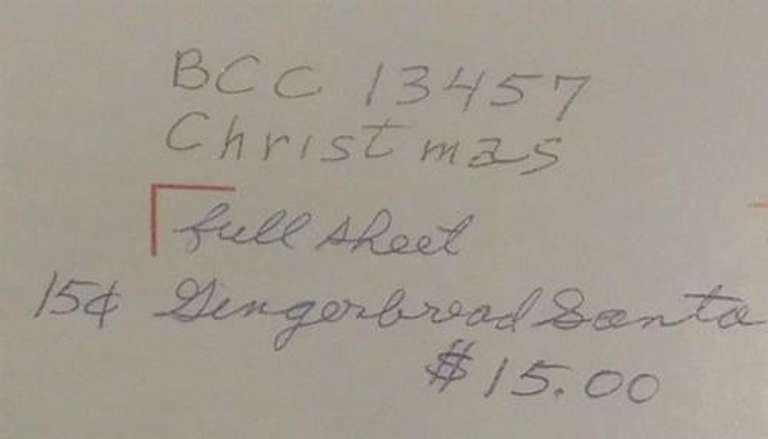 BCC 13457
Christmas
full sheet
15¢ Gingerbread Santa
$15.00